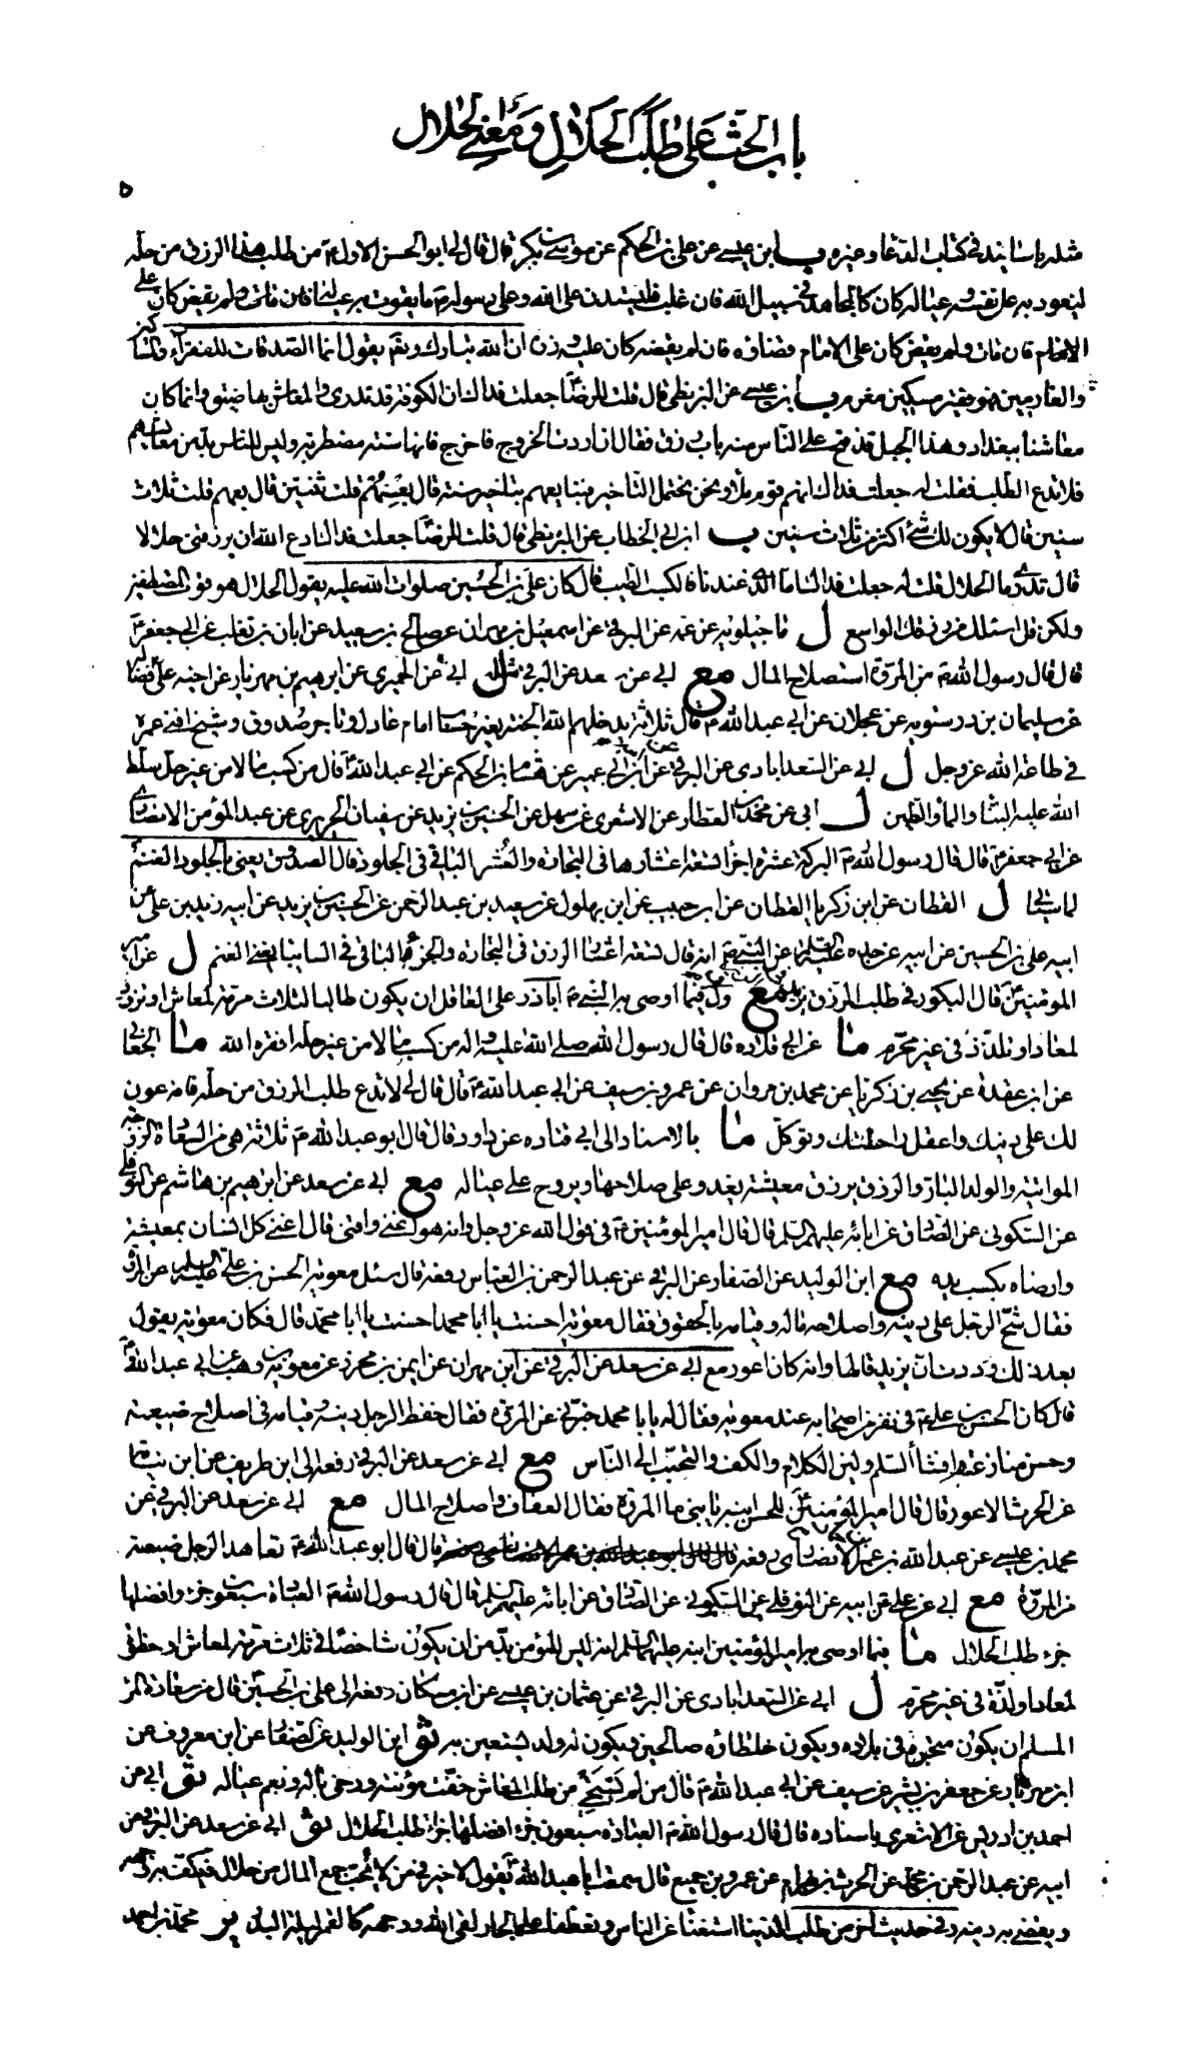 باب الحث على طلب الحلال ومعنى الحلال
٥
مثله باسانيد في كتاب الدعاء وغيره ب ابن عيسى عن علي بن الحكم عن موسى بن بكر قال قال لي ابو الحسن الاول ع من طلب هذا الرزق من حله
ليعود به على نفسه وعياله كان كالمجاهد في سبيل الله فان غلب فليستدن على الله وعلى رسوله ص ما يقوت به عياله فان مات ولم يقض كان على
الامام فان مات ولم يقض كان على الامام قضاؤه فان لم يقضه كان عليه وزره ان الله تبارك وتعم يقول انما الصدقات للفقراء والمساكين
والغارمين فهو فقير مسكين مغرم ب ابن عيسى عن البزنطي قال قلت للرضا جعلت فداك ان الكوفة قد تدري والمعاش بها ضيق وانما كان
معاشنا ببغداد وهذا الجبل قد فتح على الناس منه باب رزق فقال ان اردت الخروج فاخرج فانها سنة مضطربة وليس للناس بد من معايشهم
فلا تدع الطلب فقلت له جعلت فداك انهم قوم ملاء ونحن نحتمل التاخير فنبايعهم بتاخير سنة قال بعهم قلت سنتين قال بعهم قلت ثلاث
سنين قال لا يكون لك شئ اكثر من ثلاث سنين ب ابن ابي الخطاب عن البزنطي قال قلت للرضا جعلت فداك ادع الله ان يرزقني حلالا
قال تدري ما الحلال قلت له جعلت فداك اما الذي عندنا فالكسب الطيب قال كان علي بن الحسين صلوات الله عليه يقول الحلال هو قوت المصطفين
ولكن قل اسئلك من رزقك الواسع ل ماجيلويه عن عمه عن البرقي عن اسمعيل بن مهران عن صالح بن سعيد عن ابان بن تغلب عن ابي جعفر ع
قال قال رسول الله ص من المروة استصلاح المال مع ابي عن سعد عن البرقي مثله ل ابي عن الحميري عن ابرهيم بن مهزيار عن اخيه علي عن فضالة
عن سليمان بن درستويه عن عجلان عن ابي عبد الله ع قال ثلاثة يدخلهم الله الجنة بغير حساب امام عادل وتاجر صدوق وشيخ افنى عمره
في طاعة الله عز وجل ل ابي عن السعدابادي عن البرقي عن ابن ابي عمير عن هشام بن الحكم عن ابي عبد الله ع قال من كسب مالا من غير حله سلط
الله عليه البناء والماء والطين ل ابي عن محمد العطار عن الاشعري عن سهل عن الحسين بن يزيد عن سفيان الحريري عن عبد المؤمن الانصاري
عن ابي جعفر ع قال قال رسول الله ص البركة عشرة اجزاء تسعة اعشارها في التجارة والعشر الباقي في الجلود قال الصدوق يعني بالجلود الغنم
ل القطان عن ابن زكريا القطان عن ابن حبيب عن ابن بهلول عن سعيد بن عبد الرحمن عن الحسين بن يزيد عن ابيه زيد بن علي عن
ابيه علي بن الحسين عن ابيه عن جده عليهم السلم عن النبي ص انه قال تسعة اعشار الرزق في التجارة والجزء الباقي في السابيا يعني الغنم ل عن امير
المؤمنين ع قال البكور في طلب الرزق يزيد مع ول فيما اوصى به النبي ص اباذر على العاقل ان يكون طالبا لثلاث مرمة لمعاش او تزود
لمعاد او تلذذ في غير محرم ما عن ابي قلابة قال قال رسول الله صلى الله عليه واله من كسب مالا من غير حله افقره الله ما الجعابي
عن ابن عقدة عن يحيى بن زكريا عن محمد بن مروان عن عمرو بن سيف عن ابي عبد الله ع قال قال لي لا تدع طلب الرزق من حله فانه عون
لك على دينك واعقل راحلتك وتوكل ما بالاسناد الى ابي قتاده عن داود قال قال ابو عبد الله ع ثلاثة هي من السعادة الزوجة
المواتية والولد البار والرزق يرزق معيشة يغدو على صلاحها ويروح على عياله مع ابي عن سعد عن ابرهيم بن هاشم عن النوفلي
عن السكوني عن الصادق عن ابائه عليهم السلم قال قال امير المؤمنين ع في قول الله عز وجل وانه هو اغنى واقنى قال اغنى كل انسان بمعيشته
وارضاه بكسب يده مع ابن الوليد عن الصفار عن البرقي عن عبد الرحمن بن العباس رفعه قال سئل معوية الحسن بن علي عليه السلم عن المروة
فقال شح الرجل على دينه واصلاحه ماله وقيامه بالحقوق فقال معوية احسنت يا ابا محمد احسنت يا ابا محمد قال فكان معوية يقول
بعد ذلك وددت ان يزيد قالها وانه كان اعور مع ابي عن سعد عن البرقي عن ابن مهران عن ايمن بن محرز عن معوية بن وهب عن ابي عبد الله ع
قال كان الحسن بن علي ع في نفر من اصحابه عند معوية فقال له يا با محمد خبرني عن المروة فقال حفظ الرجل دينه وقيامه في اصلاح ضيعته
وحسن منازعته وافشاء السلم ولين الكلام والكف والتحبب الى الناس مع ابي عن سعد عن البرقي رفعه الى ابن طريف عن ابن نباتة
عن الحرث الاعور قال قال امير المؤمنين ع للحسن ابنه يا بني ما المروة فقال العفاف واصلاح المال مع ابي عن سعد عن البرقي عن
محمد بن عيسى عن عبد الله بن عمر الانصاري رفعه قال قال ابو عبد الله ع تعاهد الرجل ضيعته
من المروة مع ابي عن علي عن ابيه عن النوفلي عن السكوني عن الصادق عن ابائه عليهم السلم قال قال رسول الله ص العبادة سبعون جزء وافضلها
جزء طلب الحلال ما فيما اوصى به امير المؤمنين ابنه عليهما السلم انه ليس للمؤمن بد من ان يكون شاخصا في ثلاث مرمة لمعاش او حظوة
لمعاد او لذة في غير محرم ل ابي عن السعدابادي عن البرقي عن عثمان بن عيسى عن ابن مسكان رفعه الى علي بن الحسين ع قال من سعادة المرء
المسلم ان يكون متجره في بلاده ويكون خلطاؤه صالحين ويكون له ولد يستعين به ثو ابن الوليد عن الصفار عن ابن معروف عن
ابن مهزيار عن جعفر بن بشير عن سيف عن ابي عبد الله ع قال من لم يستحي من طلب المعاش خفت مؤنته ورخى باله ونعم عياله ثو ابي عن
احمد بن ادريس عن الاشعري باسناده قال قال رسول الله ص العبادة سبعون جزء افضلها جزء طلب الحلال ثو ابي عن سعد عن البرقي عن
ابيه عن عبد الرحمن بن محمد عن الحرث بن بهرام عن عمرو بن جميع قال سمعت ابا عبد الله ع يقول لا خير في من لا يحب جمع المال من حلال فيكف به وجهه
ويقضي به دينه وفي حديث اخر من طلب الدنيا استغناء عن الناس وتعطفا على الجار لقى الله ووجهه كالقمر ليلة البدر ير محمد بن احمد